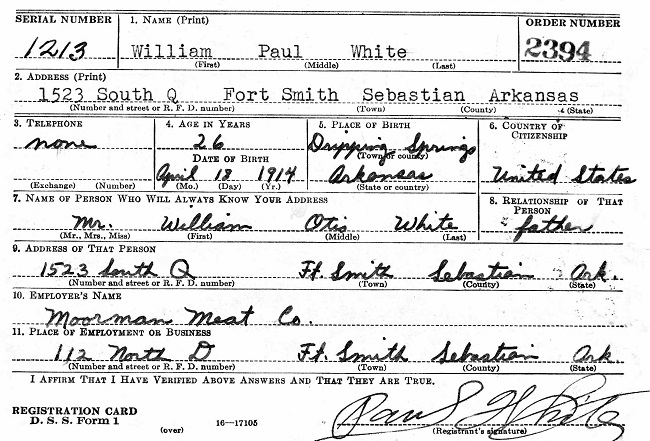 SERIAL NUMBER 1. NAME (Print) ORDER NUMBER
1213 William Paul White 2394
(First) (Middle) (Last)
2. ADDRESS (Print)
1523 South Q Fort Smith Sebastian Arkansas
(Number and street or R. F. D. number) (Town) (County) (State)
3. TELEPHONE 4. AGE IN YEARS 5. PLACE OF BIRTH 6. COUNTRY OF CITIZENSHIP
none 26 Dripping Springs
DATE OF BIRTH (Town or county)
April 18 1914 Arkansas United States
(Exchange) (Number) (Mo.) (Day) (Yr.) (State or country)
7. NAME OF PERSON WHO WILL ALWAYS KNOW YOUR ADDRESS 8. RELATIONSHIP OF THAT PERSON
Mr. William Otis White father
(Mr., Mrs., Miss) (First) (Middle) (Last)
9. ADDRESS OF THAT PERSON
1523 South Q Ft. Smith Sebastian Ark.
(Number and street or R. F. D. number) (Town) (County) (State)
10. EMPLOYER'S NAME
Moorman Meat Co.
11. PLACE OF EMPLOYMENT OR BUSINESS
112 North D Ft. Smith Sebastian Ark.
(Number and street or R. F. D. number) (Town) (County) (State)
I AFFIRM THAT I HAVE VERIFIED ABOVE ANSWERS AND THAT THEY ARE TRUE.
REGISTRATION CARD
D. S. S. Form 1 Paul White
(over) 16—17105 (Registrant's signature)